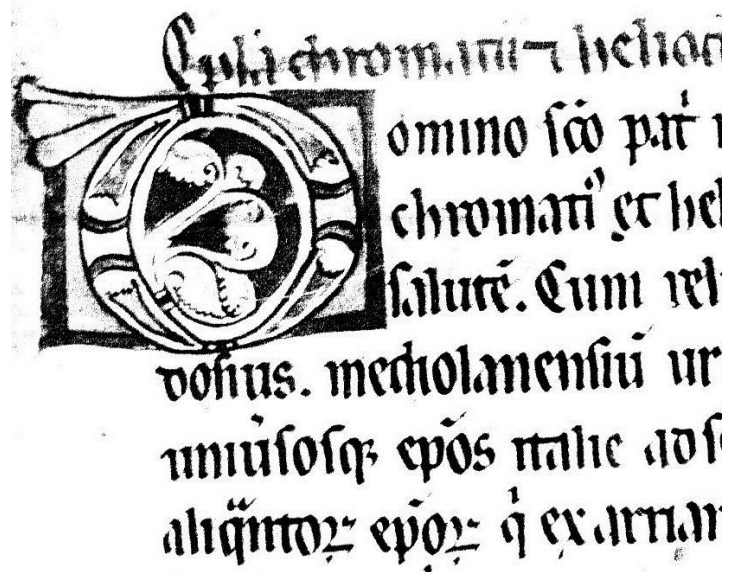 Epl̃a chromatii ⁊ heliod
Domino sc̃o pat̃
chromatiꝰ et hel
salutē. Cum rel
dosius. mediolanensiū ur
uniũsosqꝫ ep̃os italie ad s
aliq̃ntoꝝ ep̃oꝝ q̇ ex arrian